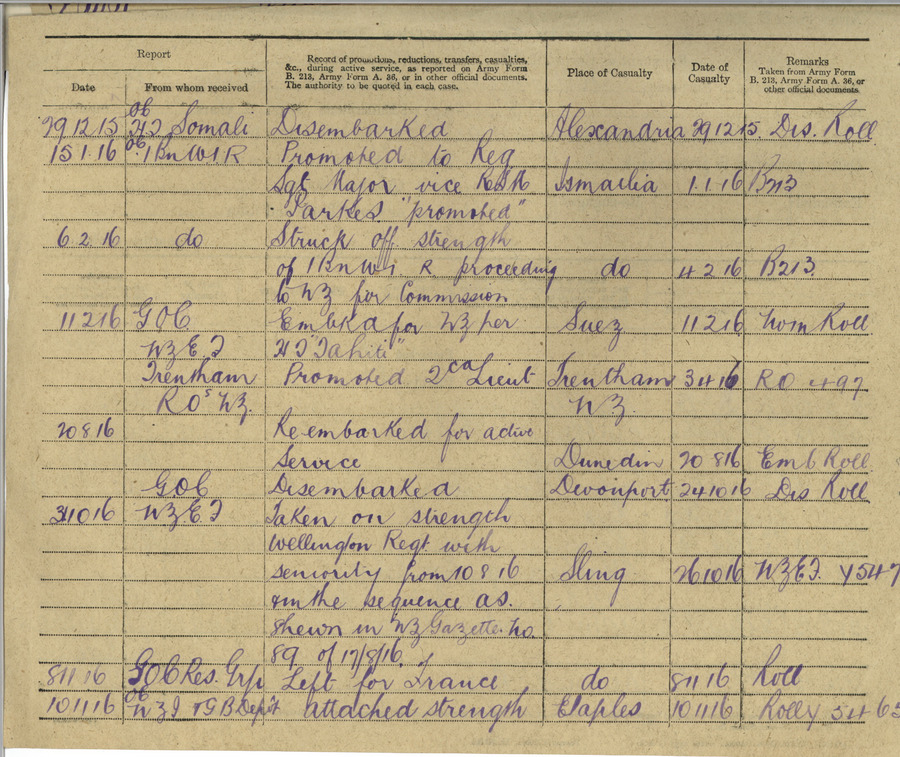 Report
Record of promotions, reductions, transfers, casualties,
&c., during active service, as reported on Army Form
B. 213, Army Form A. 36, or in other official documents.
The authority to be quoted in each case.
Place of Casualty
Date of
Casualty
Remarks
Taken from Army Form
B. 213, Army Form A. 36, or
other official documents.
Date From whom received
29 12 15 OC HT Somali Disembarked Alexandria 29 12 15 Dis. Roll
15 1 16 OC 1 Bn W I R Promoted to Reg
Sgt Major vice RSM Ismailia 1.1.16 B213
Parkes "promoted"
6 2 16 do Struck off strength
of 1 Bn W I R proceeding do 4 2 16 B213
to NZ for Commission
11 2 16 GOC Embkd for NZ per Suez 11 2 16 Nom Roll
NZEF HT "Tahiti"
Trentham Promoted 2nd Lieut Trentham 3 4 16 RO 497
ROs NZ. NZ.
20 8 16 Re-embarked for active
Service Dunedin 20 8 16 Emb Roll
GOC Disembarked Devonport 24 10 16 Dis Roll
31 10 16 NZEF Taken on strength
Wellington Regt with
seniority from 10 8 16 Sling 26 10 16 NZEF. Y547
& in the sequence as.
shewn in NZ Gazette. No.
89 of 17/8/16.
8 11 16 GOC Res. Grp Left for France do 8 11 16 Roll
10 11 16 OC NZ I & G B Depôt attached strength Etaples 10 11 16 Roll Y 5465